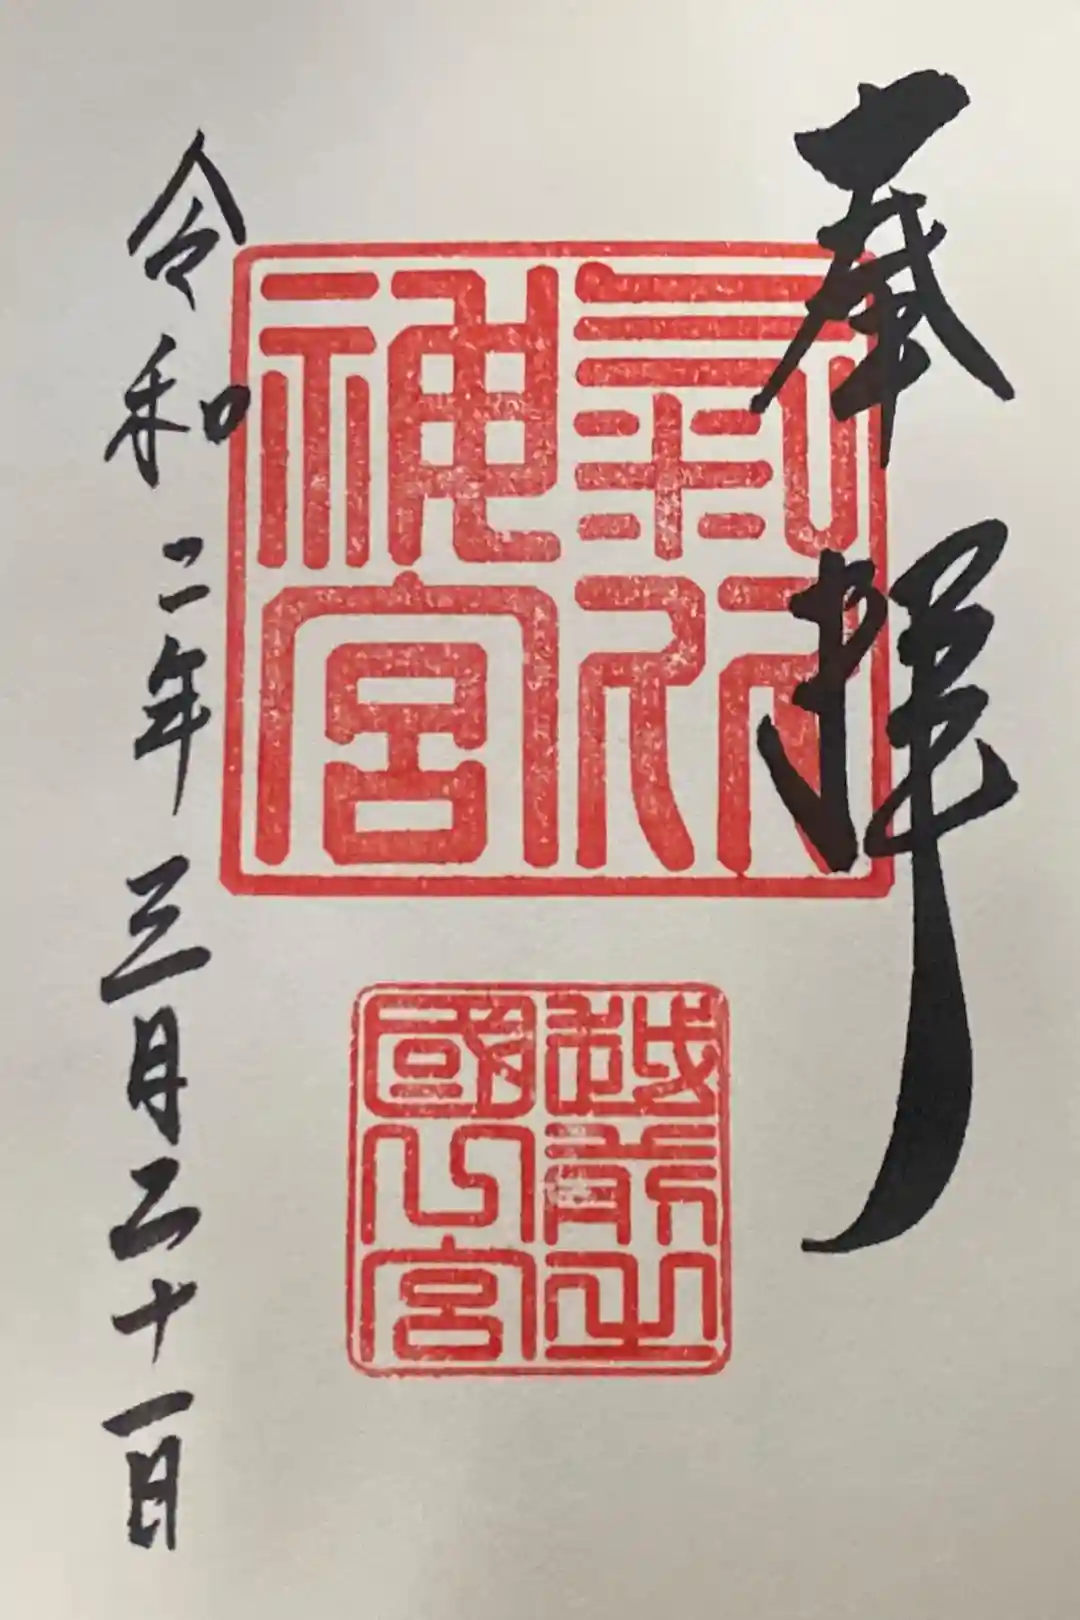 奉拝
氣比
神宮
越前之
國一宮
令和二年三月二十一日